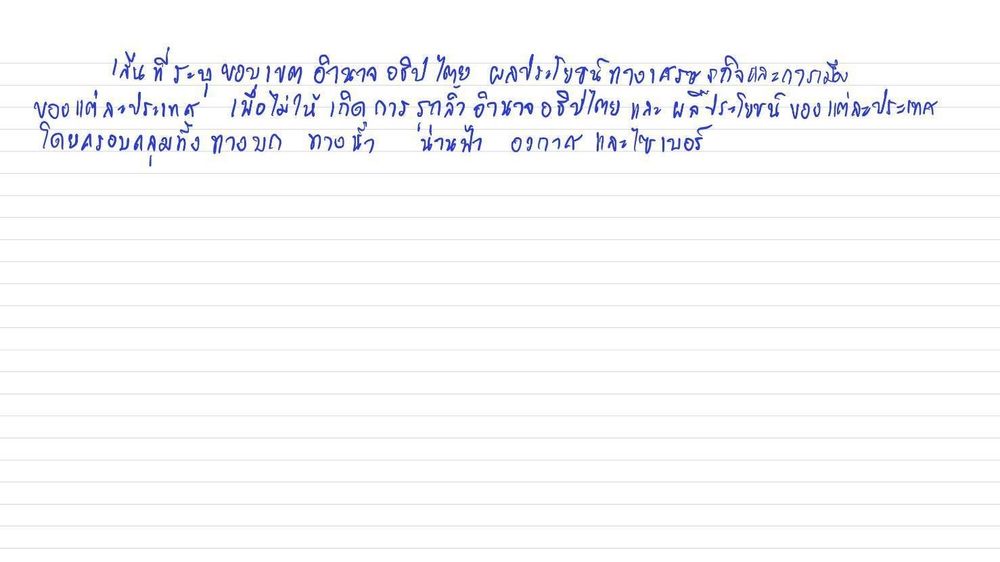 เส้นที่ระบุขอบเขตอำนาจอธิปไตย ผลประโยชน์ทางเศรษฐกิจและการเมือง
ของแต่ละประเทศ เพื่อไม่ให้เกิดการรุกล้ำอำนาจอธิปไตยและผลประโยชน์ของแต่ละประเทศ
โดยครอบคลุมทั้งทางบก ทางน้ำ น่านฟ้า อวกาศ และไซเบอร์